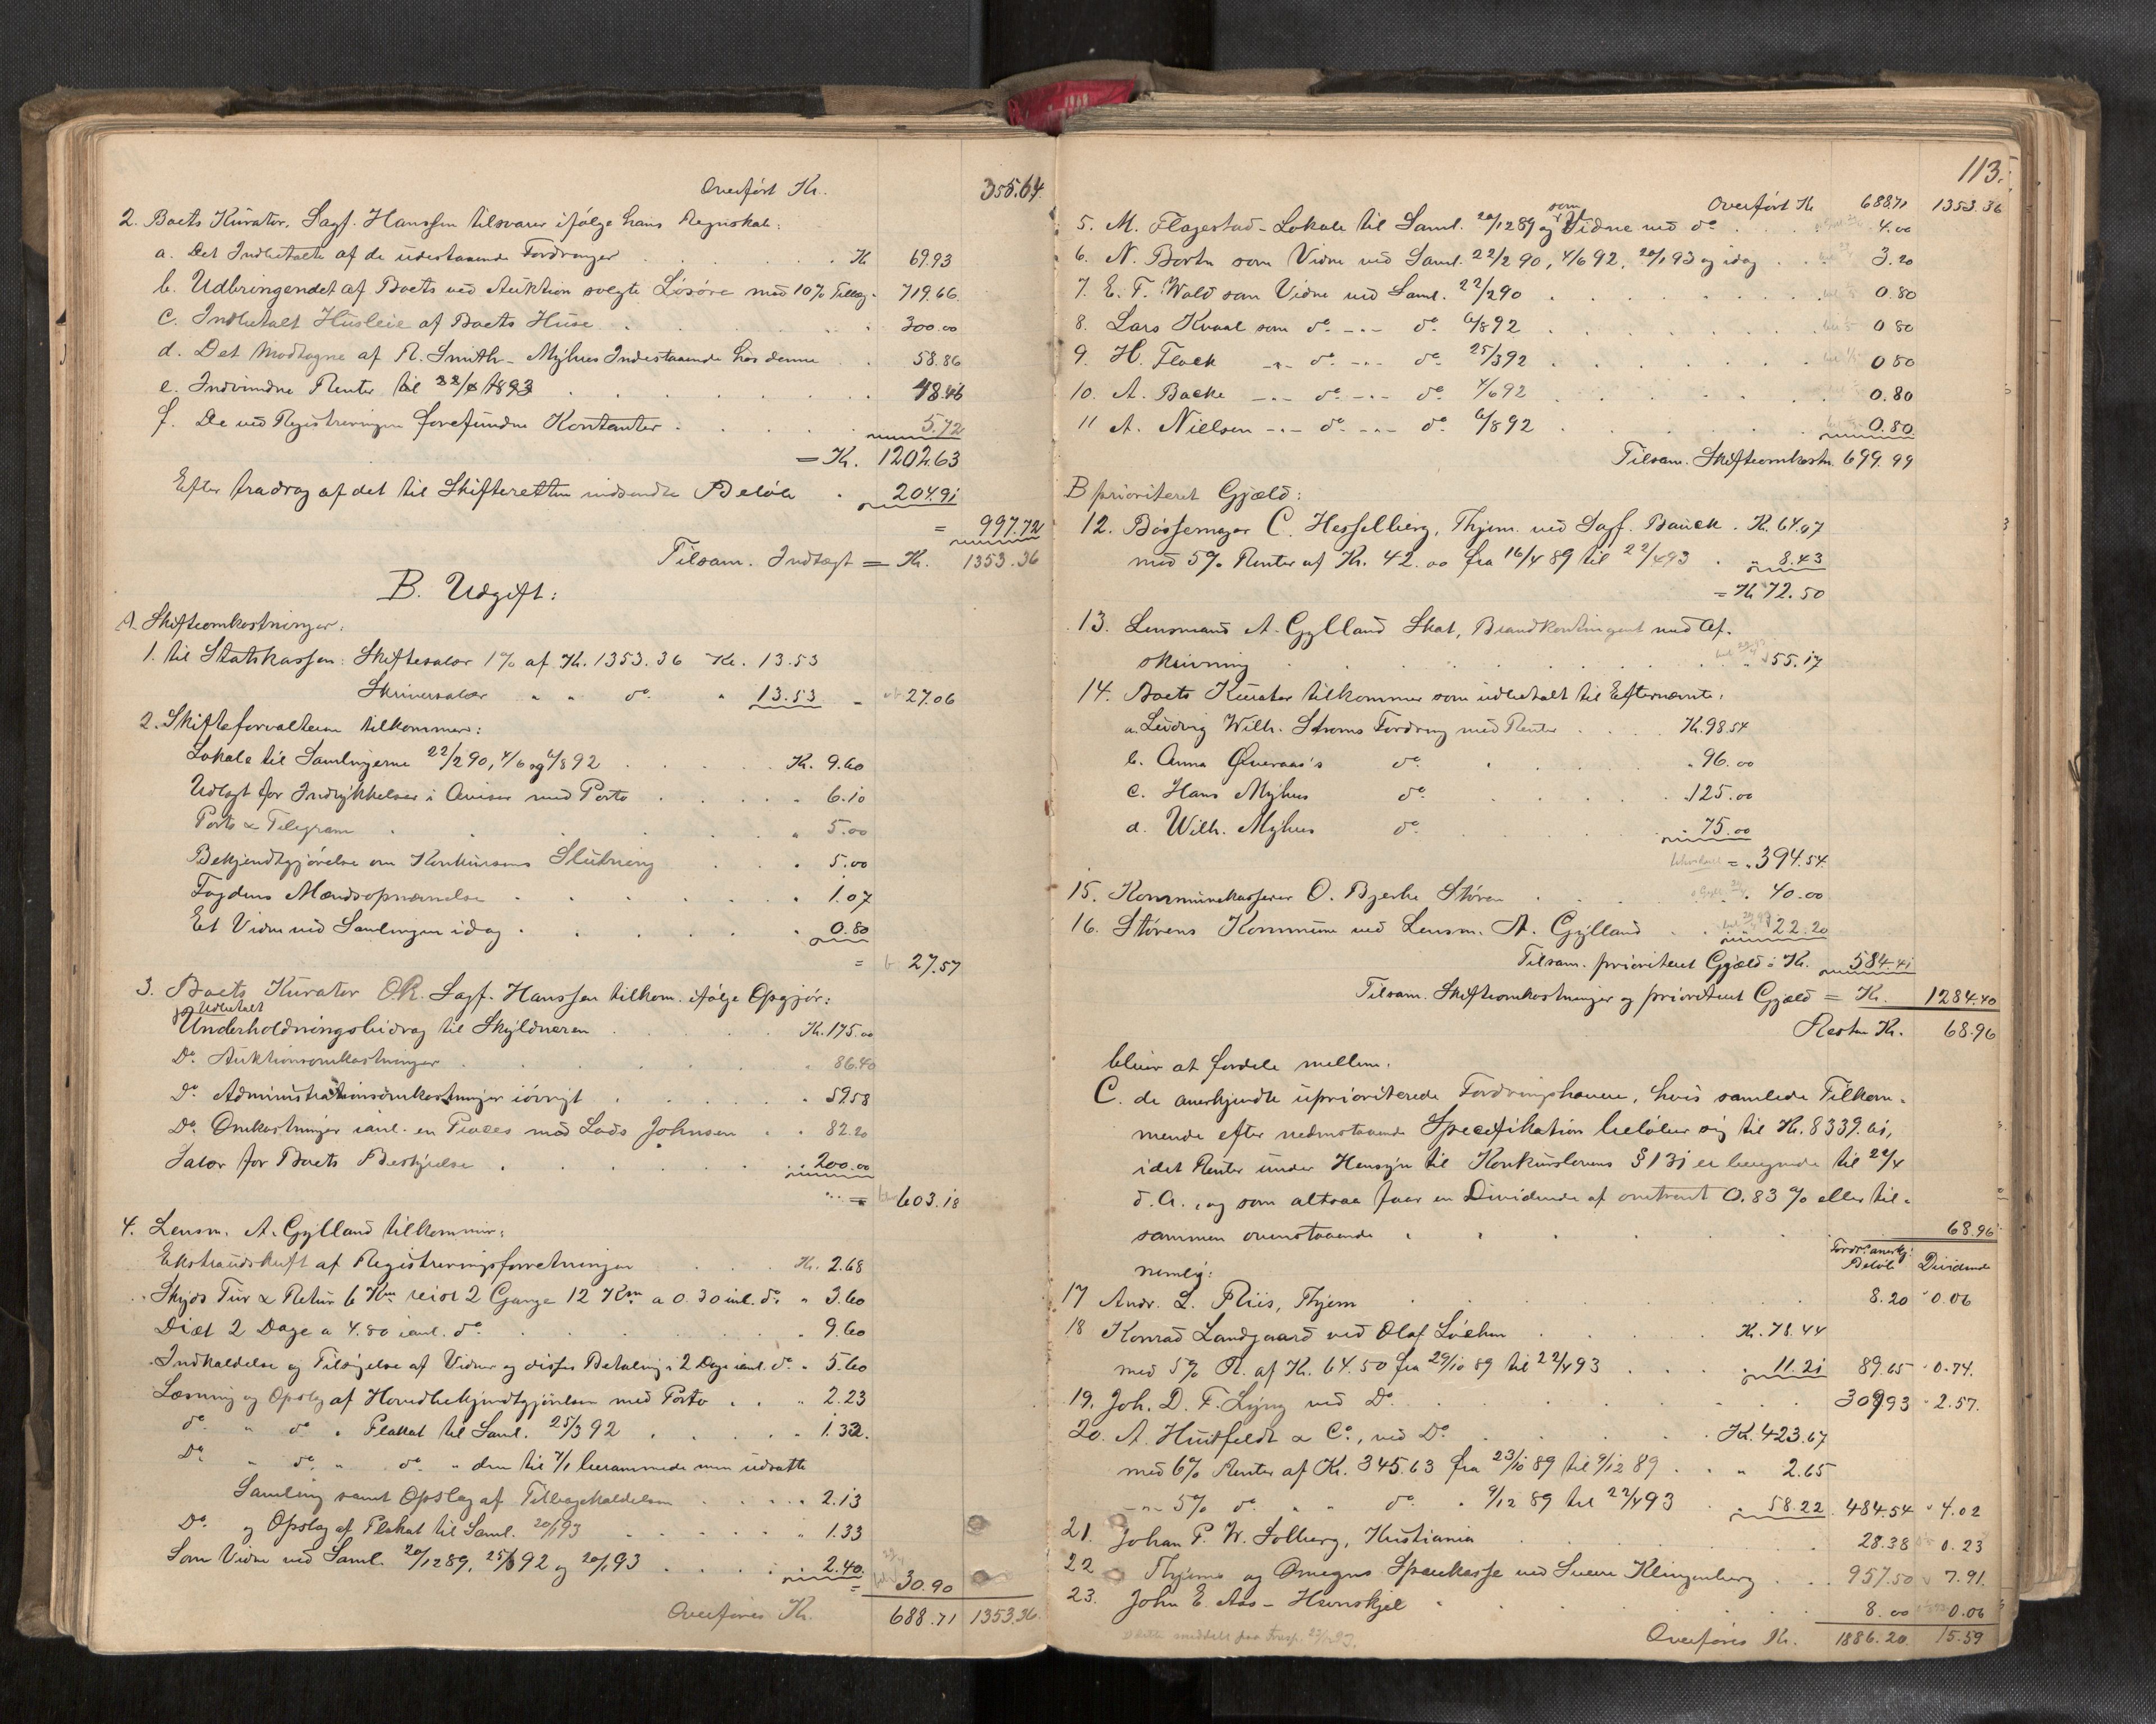 Overført Kr. 355.64
2. Boets Kurator, Sagf. Hanssen tilsvarer ifølge hans Regnskab:
a. Det Indbetalte af de udestaaende Fordringer Kr 69.93
b. Udbringendet af Boets ved Auktion solgte Løsøre med 10% Tillæg 719.66
c. Indbetalt Husleie af Boets Huse 300.00
d. Det Modtagne af R. Smith - Myhus Indestaaende hos denne 58.86
e. Indvundne Renter til 22/4 1893 48.46
f. De ved Registreringen forefundne Kontanter 5.72
= Kr. 1202.63
Efter fradrag af det til Skifteretten indsendte Beløb 204.91
= 997.72
Tilsam. Indtægt = Kr. 1353.36
B. Udgift:
A. Skifteomkostninger:
1. til Statskassen: Skiftesalær 1% af Kr. 1353.36 Kr. 13.53
Skriversalær " " do " 13.53 - 27.06
2. Skifteforvalteren tilkommer:
Lokale til Samlingerne 22/2 90, 4/6 og 6/8 92 Kr. 9.60
Udlagt for Indrykkelser i Aviser med Porto " 6.10
Porto & Telegram " 5.00
Bekjendtgjørelse om Konkursens Slutning " 5.00
Fogdens Mændsopnævnelse " 1.07
Et Vidne ved Samlingen idag " 0.80
= 27.57
3. Boets Kurator O.R. Sagf. Hanssen tilkom. ifølge Opgjør:
Udbetalt
Underholdningsbidrag til Skyldneren Kr. 175.00
Do. Auktionsomkostninger " 86.40
Do Administrationsomkostninger iøvrigt " 59.58
Do. Omkostninger ianl. en Proces mod Lods Johnsen " 82.20
Salær for Boets Bestyrelse " 200.00
= 603.18
4. Lensm. A. Gylland tilkommer:
Ekstraudskrift af Registreringsforretningen Kr. 2.68
Skyds Tur & Retur 6 Km reist 2 Gange 12 Km a 0.30 ianl. do " 3.60
Diæt 2 Dage a 4.80 ianl. do. 9.60
Indkaldelse og Tilsigelse af Vidner og disses Betaling i 2 Dage ianl. do. " 5.60
Læsning og Opslag af Hovedbekjendtgjørelsen med Porto " 2.23
do. " do " Plakat til Saml. 25/3 92 " 1.33.
Do " do. " do. " den til 7/1 berammede men udsatte
Samling samt Opslag af Tilbagekaldelsen " 2.13
Do. og Opslag af Plakat til Saml. 20/1 93 " 1.33
Som Vidne ved Saml. 20/12 89, 25/3 92 og 20/1 93 2.40
= 30.90
Overføres Kr. 688.71 1353.36
113.
Overført Kr 688.71 1353.36
5. M. Flagestad - Lokale til Saml. 20/12 89 og som Vidne ved do 4.00
6. N. Bortn som Vidne ved Saml. 22/2 90, 4/6 92, 20/1 93 og idag 3.20
7. E. T. Wold som Vidne ved Saml. 22/2 90 0.80
8. Lars Kvaal som do. -"- do. 6/8 92 0 80
9. H. Flock -"- do. -"- do. 25/3 92 0 80
10. A. Backe -"- do -"- do. 4/6 92 0.80
11 A. Nielsen -"- do. -"- do. 6/8 92 0.80
Tilsam. Skifteomkostn. 699.99
B prioriteret Gjæld:
12. Bøssemager C. Hesselberg, Thjem. ved Sagf. Bauck. Kr. 64.07
med 5% Renter af Kr. 42.00 fra 16/4 89 til 22/4 93 " 8.43
= Kr 72.50
13. Lensmand A. Gylland Skat, Brandkontingent med Af-
skrivning 55.17
14. Boets Kurator tilkommer som udbetalt til Efternævnte:
a. Ludvig Wilh. Strøms Fordring med Renter Kr. 98.54
b. Anna Øveraas's do. " 96.00
c. Hans Myhus do. " 125.00
d. Wilh. Myhus do. " 75.00
= " 394.54
15. Kommunekasserer O. Bjerke Støren " 40.00
16. Størens Kommune ved Lensm. A. Gylland 22.20
Tilsam. prioriteret Gjæld: Kr. 584.41
Tilsam. Skifteomkostninger og prioriteret Gjæld = Kr. 1284.40
Resten Kr. 68.96
bliver at fordele mellem:
C. de anerkjendte uprioriterede Fordringshavere, hvis samlede Tilkom-
mende efter nedenstaaende Specifikation beløber sig til Kr. 8339.01,
idet Renter under Hensyn til Konkurslovens § 131 er beregnede til 22/4
d. A., og som altsaa faar en Dividende af omtrent 0.83 % eller til-
sammen ovenstaaende 68.96
Fordr. anerkj. Beløb Dividende
nemlig:
17 Andr. L. Riis, Thjem 8.20 " 0.06
18 Konrad Landgaard ved Olaf Løchen Kr. 78.44
med 5% R. af Kr. 64.50 fra 29/10 89 til 22/4 93 " 11.21 89.65 " 0.74.
19. Joh. D. F. Lyng ved Do. 309.93 " 2.57.
20. A. Huitfeldt & Co., ved Do. Kr. 423.67
med 6% Renter af Kr. 345.63 fra 23/10 89 til 9/12 89 " 2.65
-"- 5% do. " " do. " 9/12 89 til 22/4 93 " 58.22 484.54 " 4.02
21. Johan P. W. Solberg, Kristiania 28.38 0.23
22 Thjems og Omegns Sparekasse ved Sverre Klingenberg 957.50 " 7.91.
23. John E. Aas - Hernskjel 8.00 0.06
Overføres Kr. 1886.20 15.59